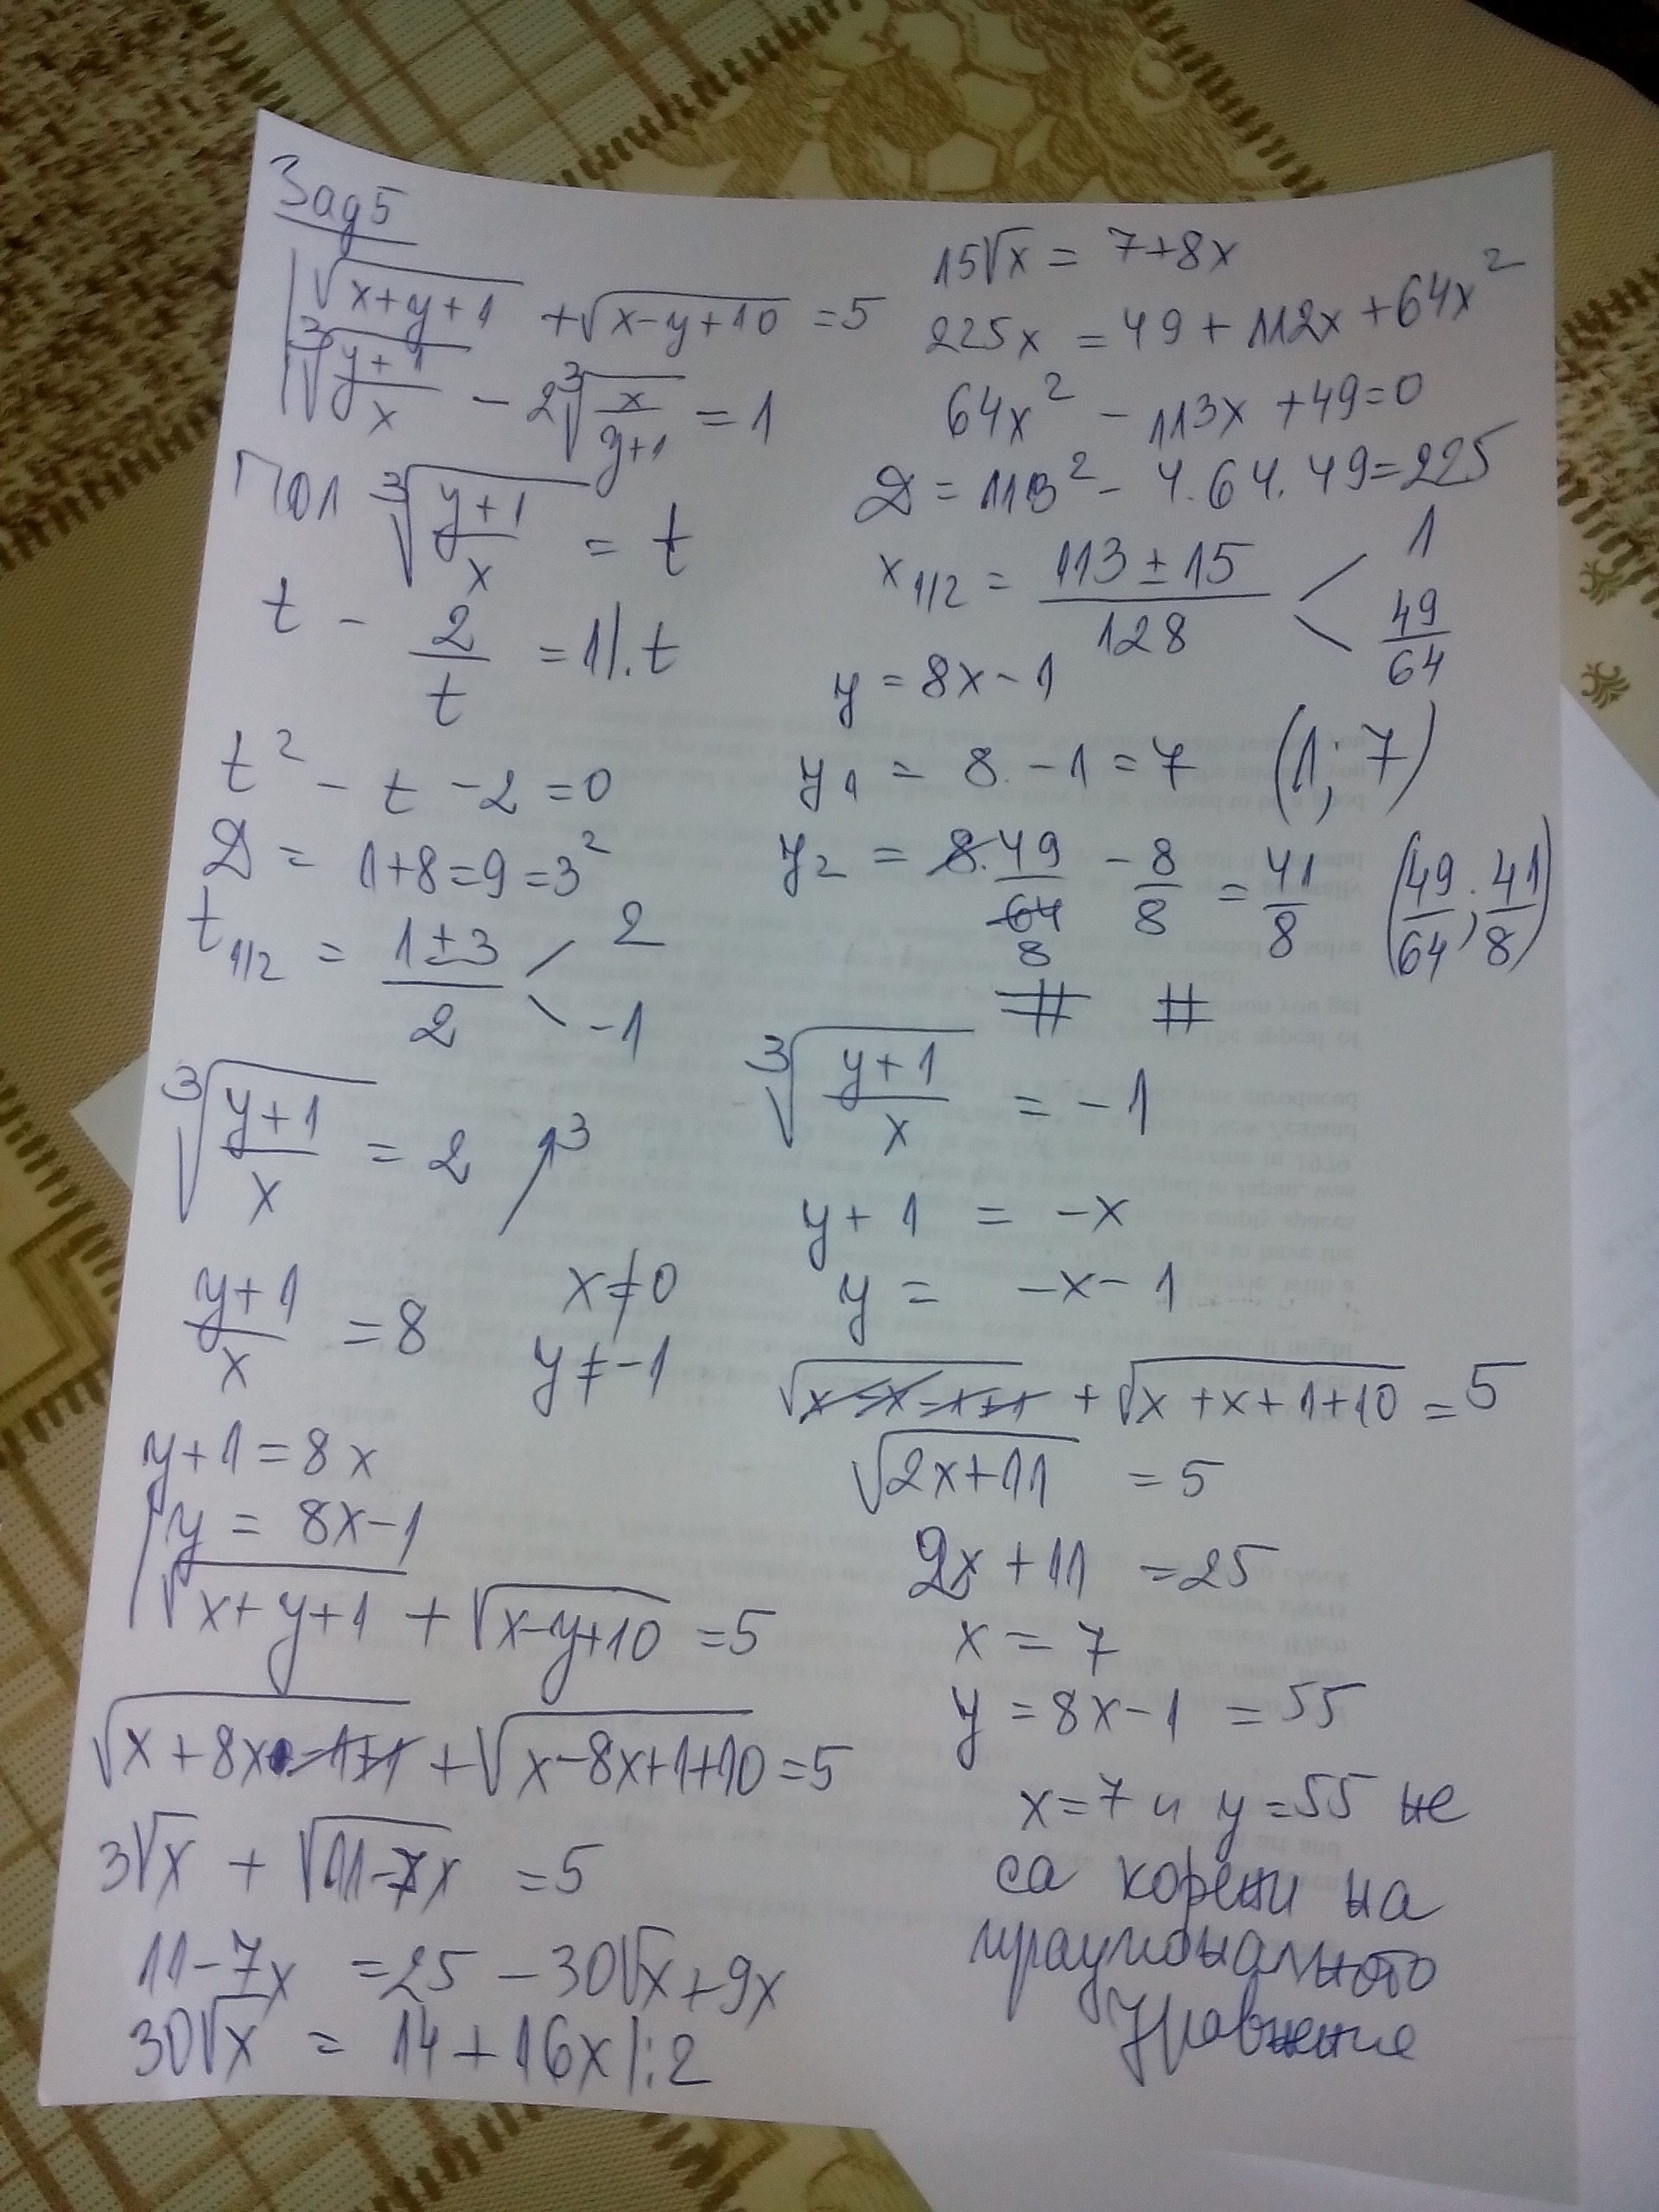 Зад 5
√(x+y+1) + √(x-y+10) = 5
∛((y+1)/x) - 2∛(x/(y+1)) = 1
Пол ∛((y+1)/x) = t
t - 2/t = 1 |.t
t² - t - 2 = 0
D = 1+8=9=3²
t1/2 = (1±3)/2 < 2
-1
∛((y+1)/x) = 2 /↑3
(y+1)/x = 8
x≠0
y≠-1
y+1=8x
y = 8x-1
√(x+y+1) + √(x-y+10) = 5
√(x+8x-1+1) + √(x-8x+1+10) = 5
3√x + √(11-7x) = 5
11-7x = 25 - 30√x + 9x
30√x = 14 + 16x |:2
15√x = 7+8x
225x = 49 + 112x + 64x²
64x² - 113x + 49=0
D = 113² - 4.64.49=225
x1/2 = (113±15)/128 < 1
49/64
y = 8x-1
y1 = 8.-1 = 7 (1; 7)
y2 = 8.49/64 8 - 8/8 = 41/8 (49/64; 41/8)
# #
∛((y+1)/x) = -1
y+1 = -x
y = -x-1
√(x-x-1+1) + √(x+x+1+10) = 5
√(2x+11) = 5
2x+11 = 25
x = 7
y = 8x-1 = 55
x=7 и y=55 не
са корени на
ирационалното
уравнение